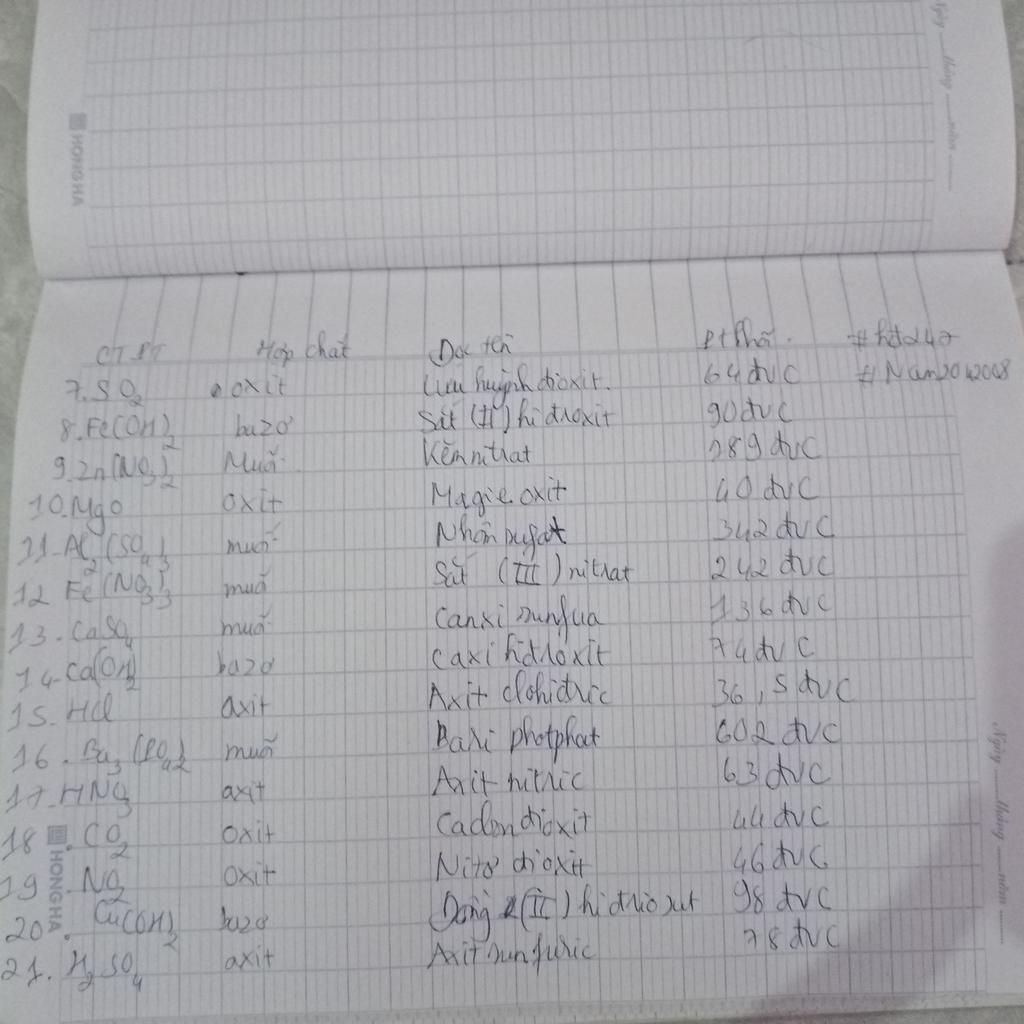 Ngày ...... tháng ...... năm ......
HONG HA
CTPT Hợp chất Đọc tên Ptkhối. #hd247
7. SO2 oxit Lưu huỳnh đioxit. 64 đvC #Nam2042008
8. Fe(OH)2 bazơ Sắt (II) hiđroxit 90 đvC
9. Zn(NO3)2 Muối Kẽm nitrat 189 đvC
10. MgO oxit Magie oxit 40 đvC
11. Al2(SO4)3 muối Nhôm sunfat 342 đvC
12 Fe(NO3)3 muối Sắt (III) nitrat 242 đvC
13. CaSO4 muối Canxi sunfua 136 đvC
14. Ca(OH)2 bazơ Caxi hiđroxit 74 đvC
15. HCl axit Axit clohiđric 36,5 đvC
16. Ba3(PO4)2 muối Bari photphat 602 đvC
17. HNO3 axit Axit nitric 63 đvC
18. CO2 oxit Cacbon đioxit 44 đvC
19. NO2 oxit Nitơ đioxit 46 đvC
20. Cu(OH)2 bazơ Đồng (II) hiđrioxit 98 đvC
21. H2SO4 axit Axit sunfuric 78 đvC
HONG HA
Ngày ...... tháng ...... năm ......